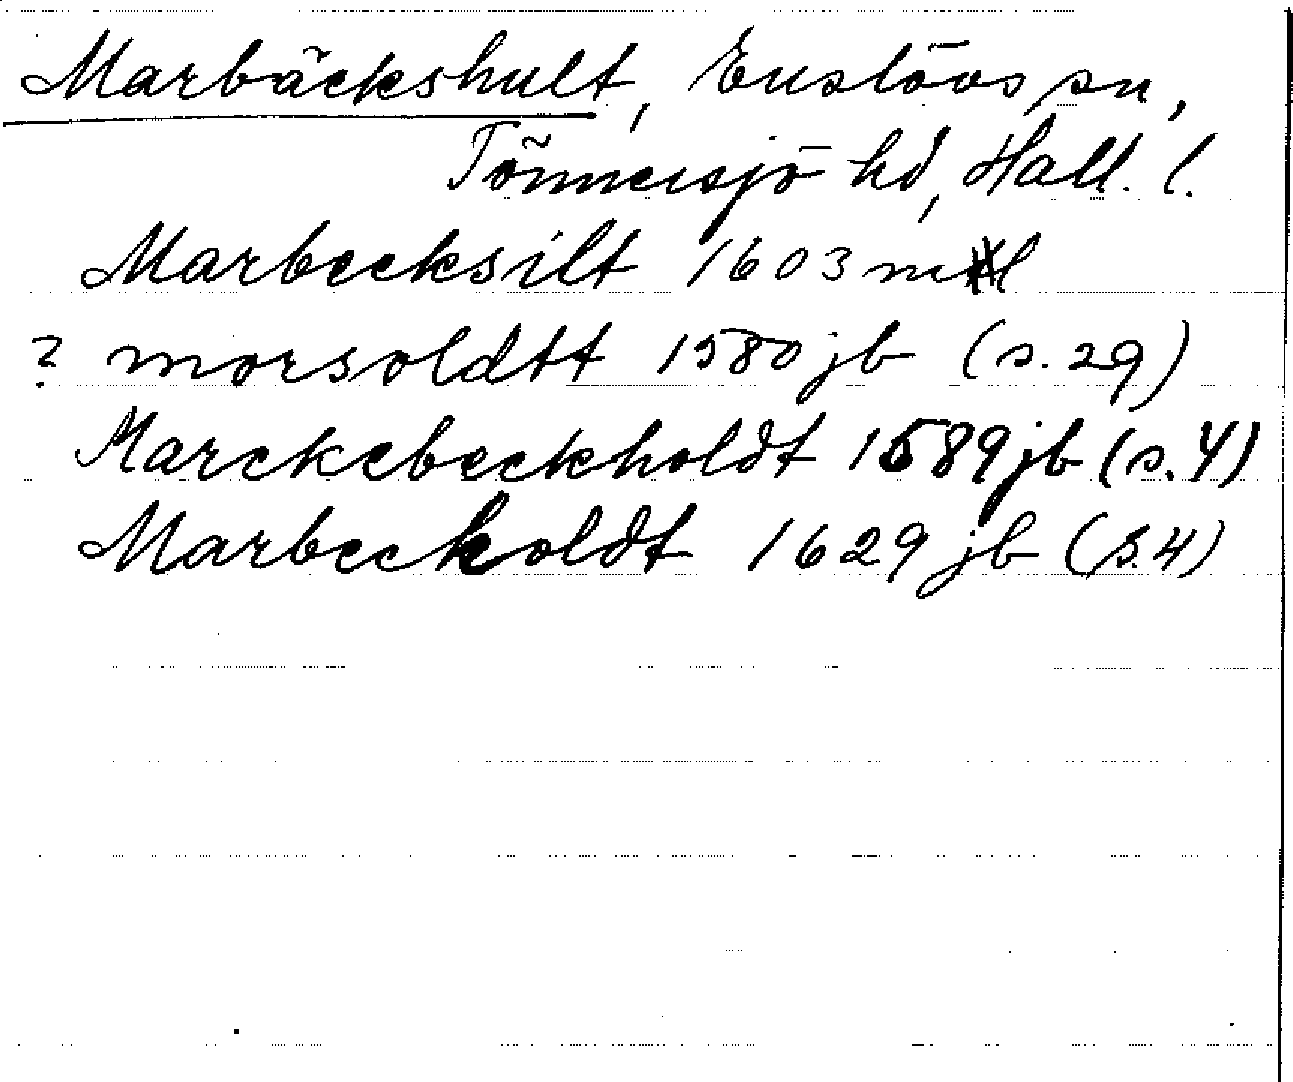 Marbäckshult, Enslövs sn,
Tönnersjö hd, Hall. l.
Marbecksilt 1603 ml
? morsoldtt 1580 jb (s. 29)
Marckebeckholdt 1589 jb (s. 4)
Marbeckoldt 1629 jb (s. 4)